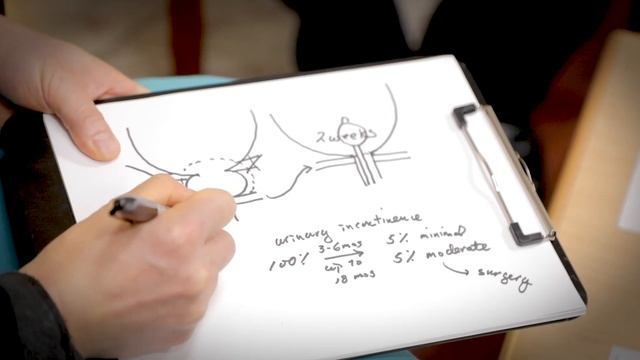 2 weeks
urinary incontinence
100% 3-6 mos 5% minimal
up to 5% moderate
18 mos surgery